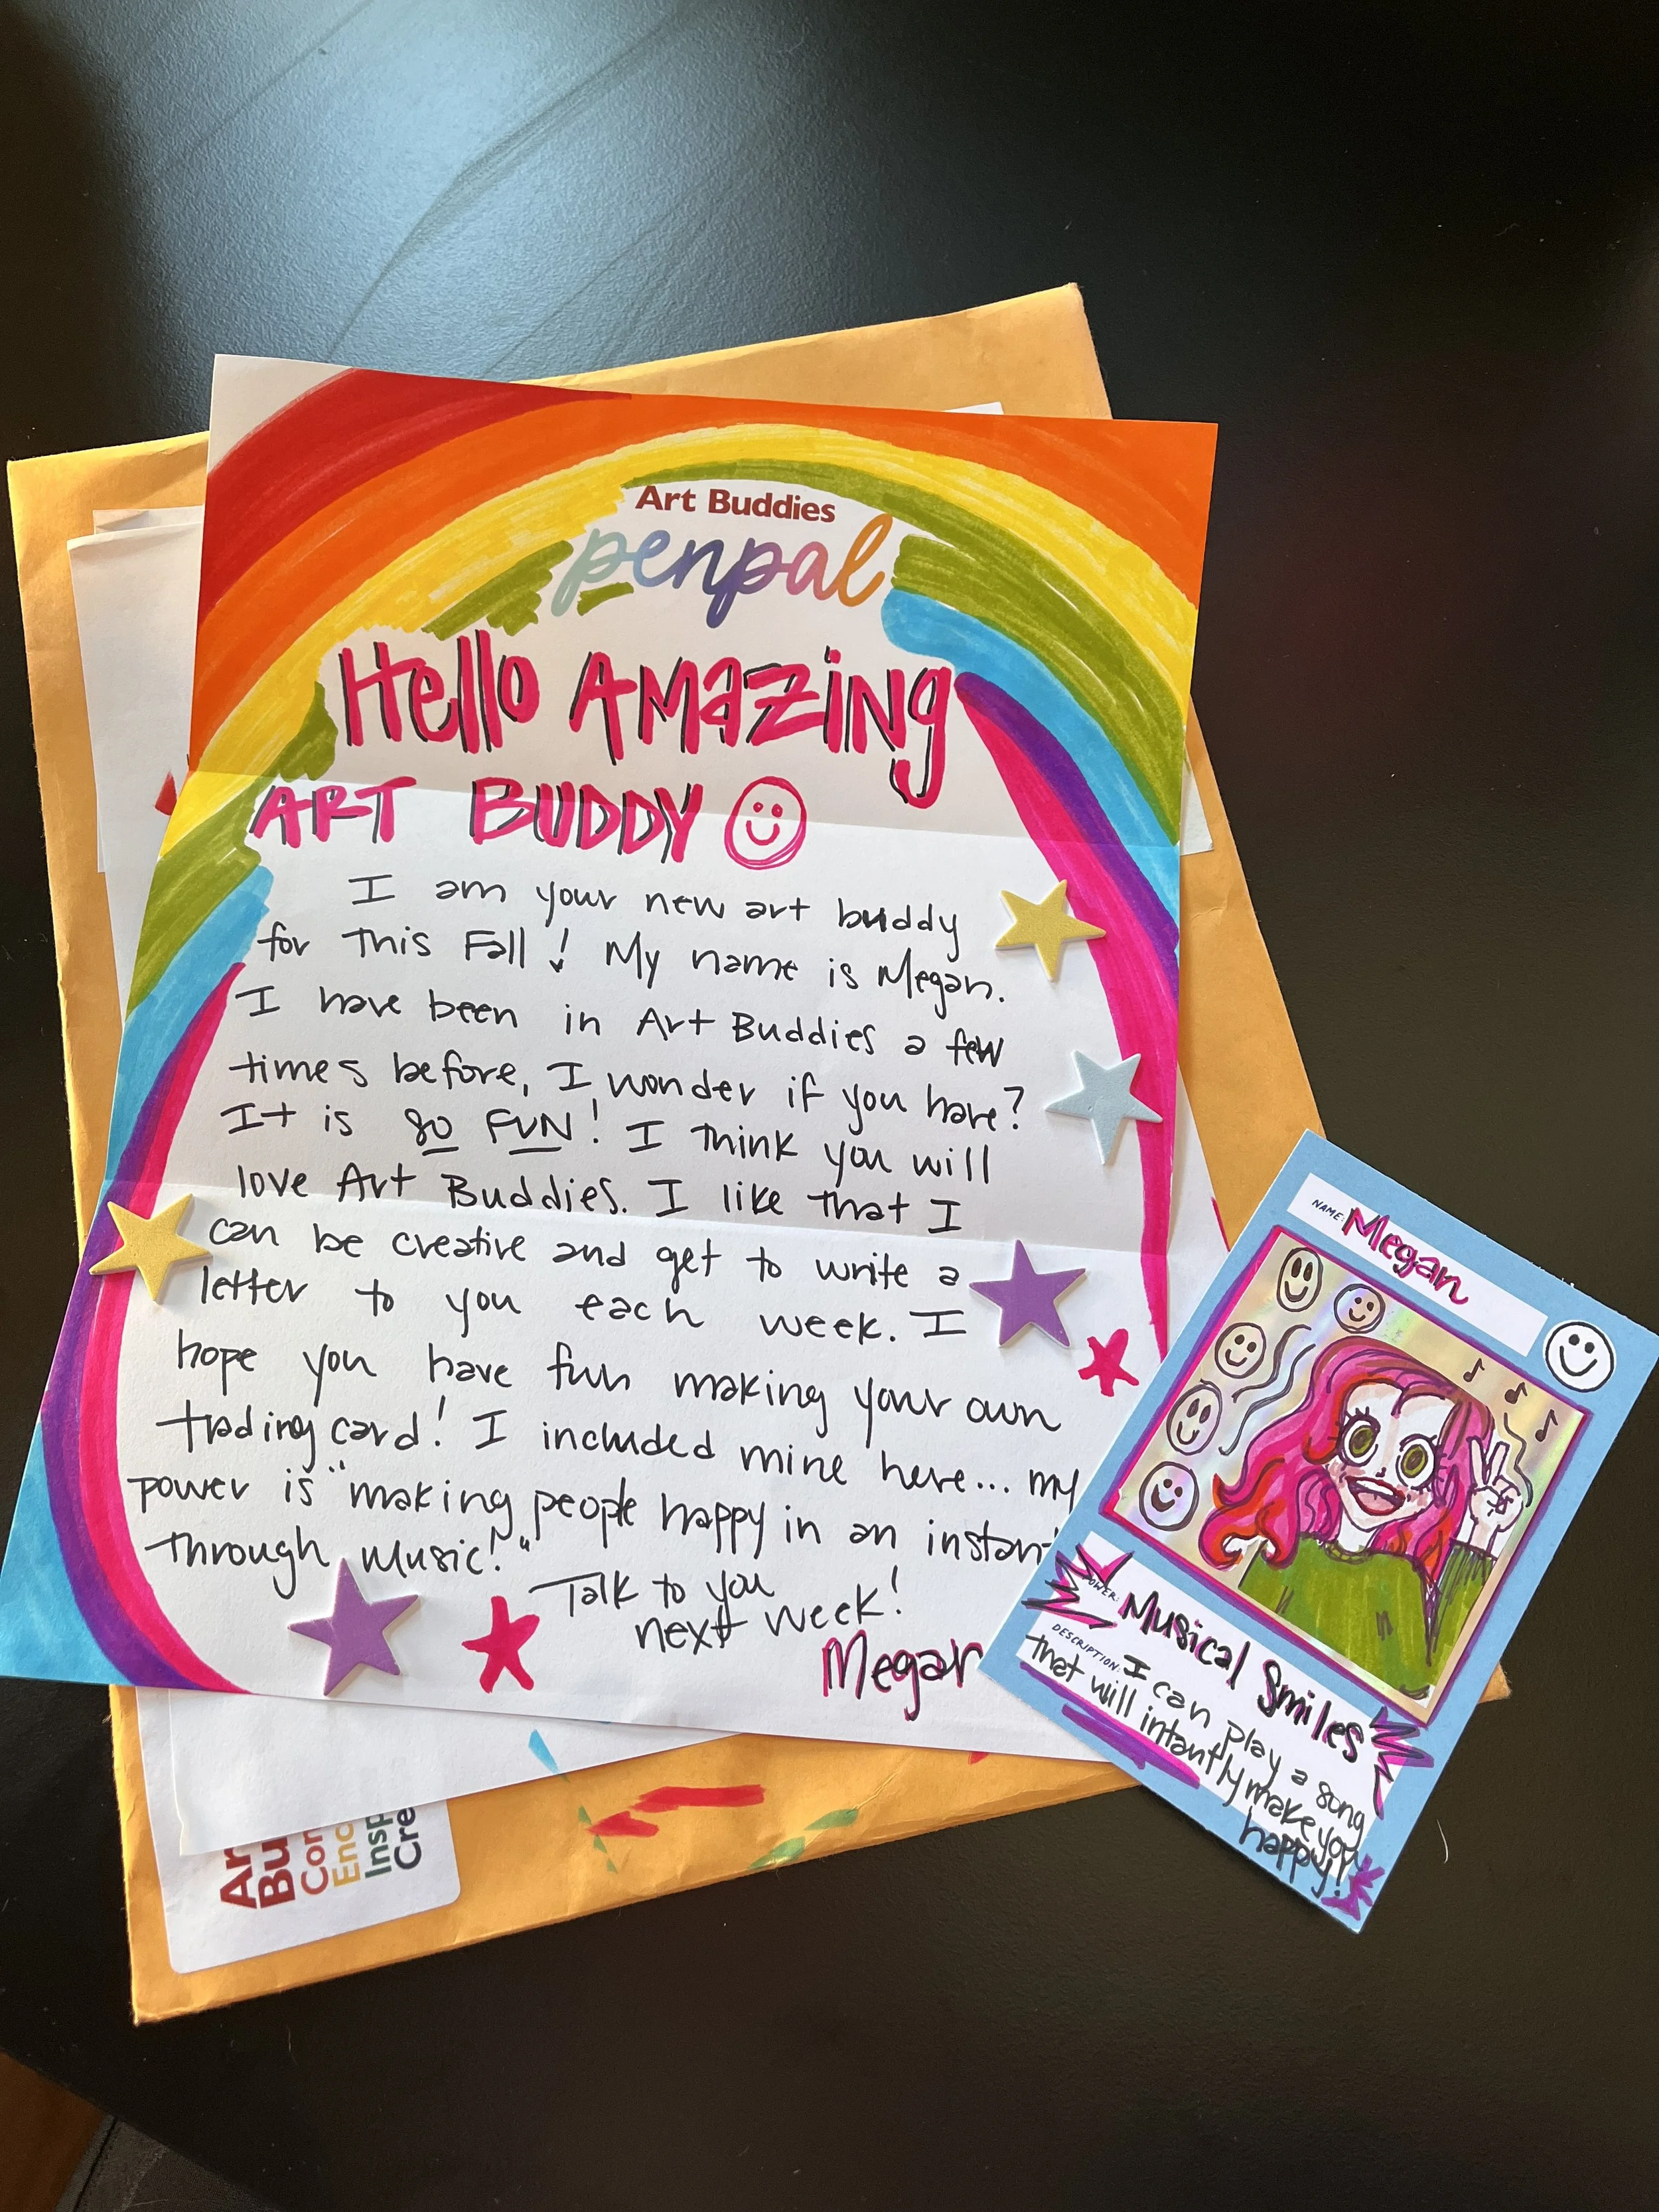 Art Buddies
penpal
Hello Amazing
ART BUDDY
I am your new art buddy
for this Fall! My name is Megan.
I have been in Art Buddies a few
times before, I wonder if you have?
It is so FUN! I think you will
love Art Buddies. I like that I
can be creative and get to write a
letter to you each week. I
hope you have fun making your own
trading card! I included mine here... my
power is "making people happy in an instan
through music!"
Talk to you
next week!
Megan
NAME: Megan
POWER: Musical Smiles
DESCRIPTION: I can play a song
that will intantly make you
happy!
Ar
Bu
Con
Enc
Insp
Cre